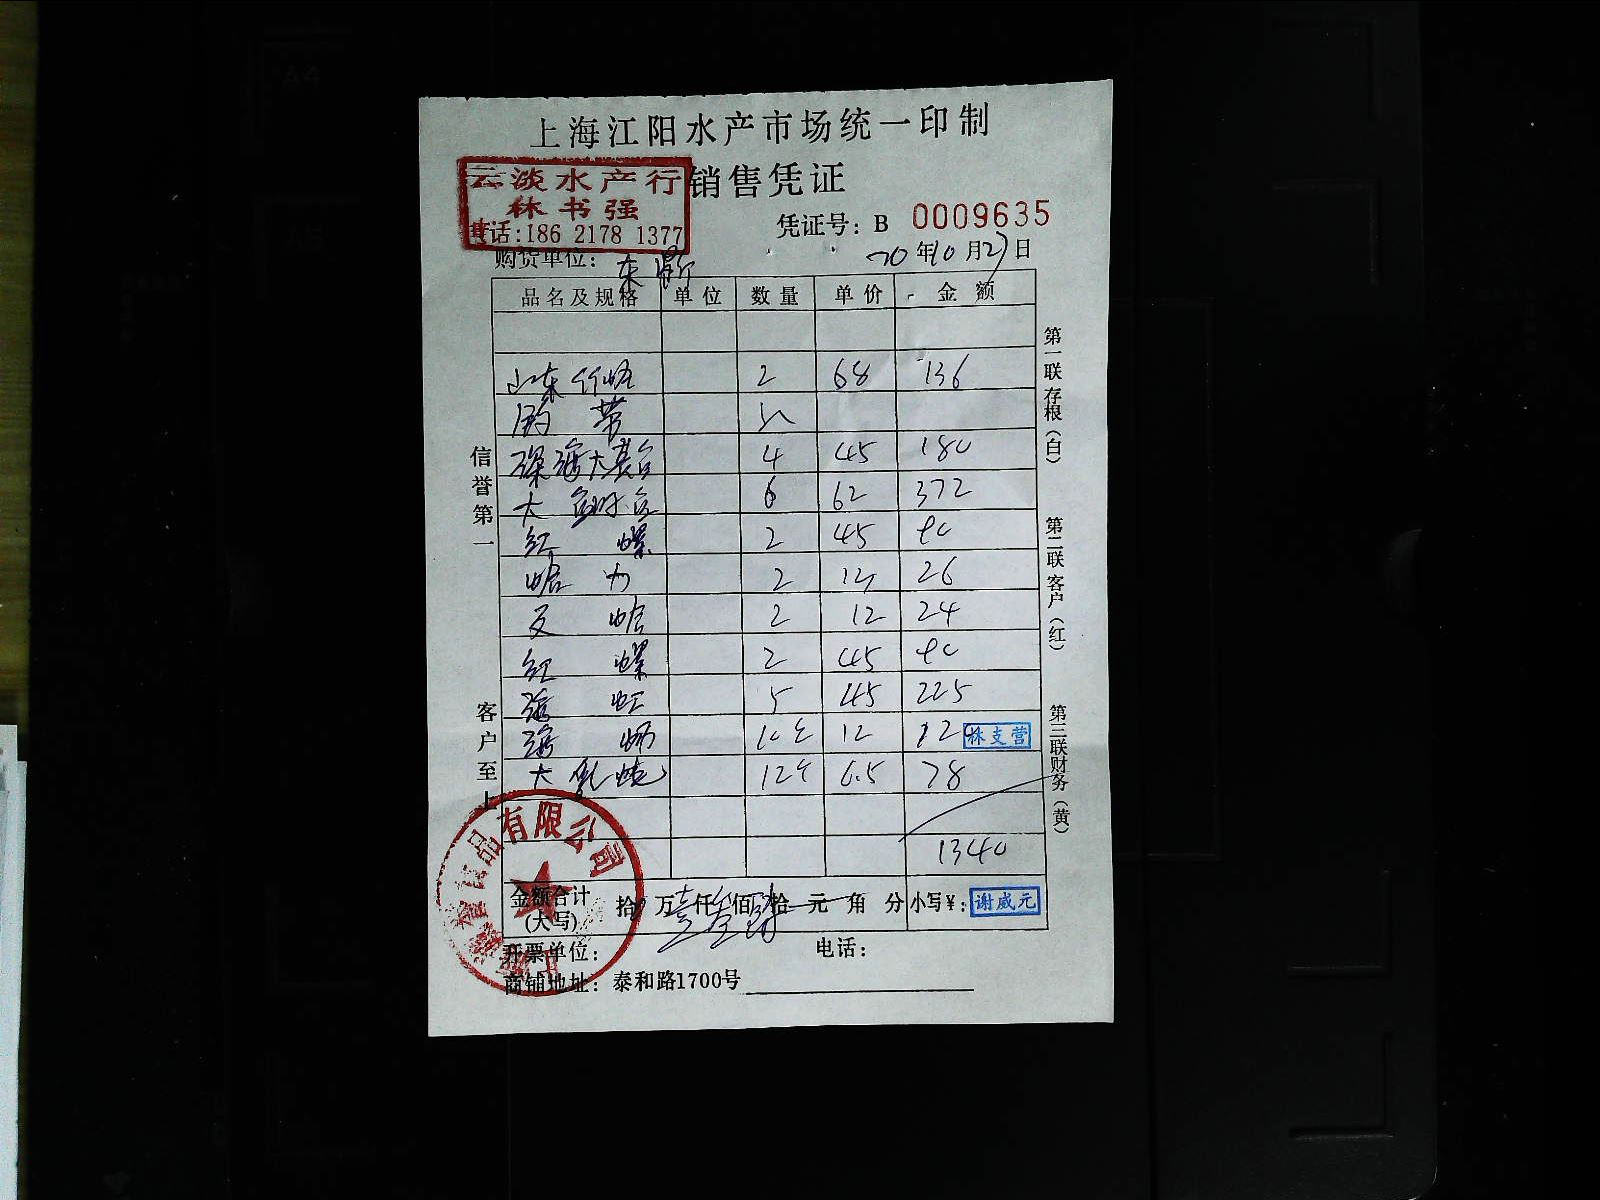 上海江阳水产市场统一印制
云淡水产行
林书强
电话:186 2178 1377
销售凭证
凭证号: B 0009635
购货单位:
20年10月27日
品名及规格 单位 数量 单价 金额
山东竹蛏 2 68 136
带
深海大 4 45 180
大 6 62 372
红螺 2 45 90
蛤 2 13 26
文蛤 2 12 24
红螺 2 45 90
海虹 5 45 225
海 12 12
林支营
大 12 6.5 78
1340
金额合计(大写) 拾 万 仟 佰 拾 元 角 分 小写¥:
谢威元
开票单位: 电话:
商铺地址: 泰和路1700号
信誉第一
客户至上
第一联存根(白)
第二联客户(红)
第三联财务(黄)
食品有限公司